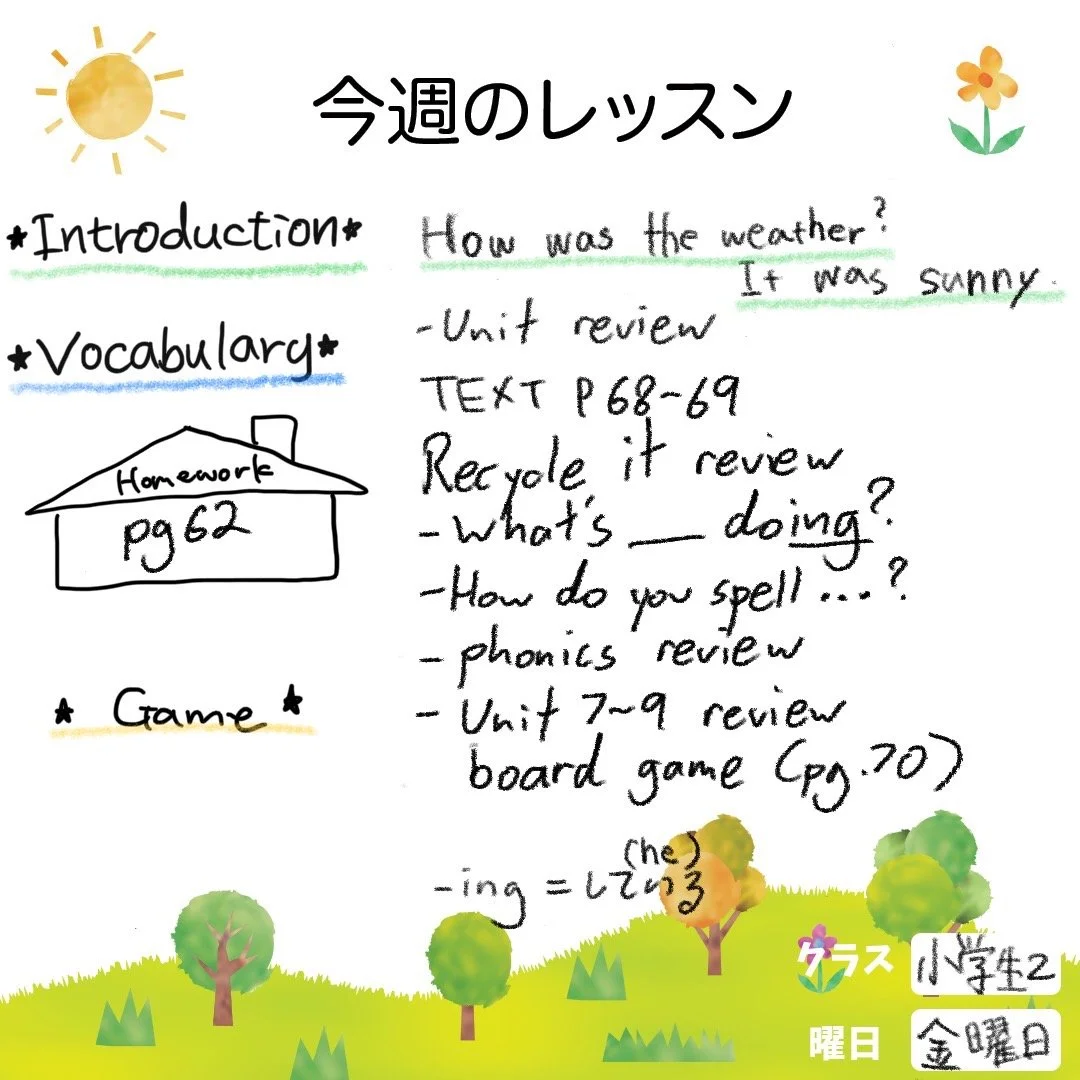 今週のレッスン
★Introduction★
How was the weather?
It was sunny.
★Vocabulary★
-Unit review
TEXT P 68~69
Recycle it review
-What's __ doing?
-How do you spell...?
- phonics review
- Unit 7~9 review
board game (pg.70)
Homework
pg 62
★ Game ★
(he)
-ing = している
クラス 小学生2
曜日 金曜日